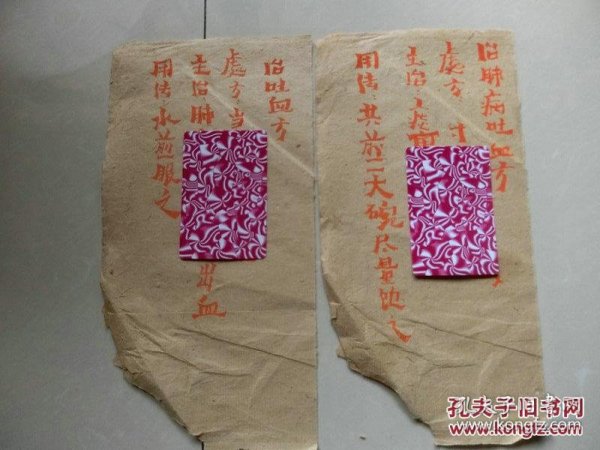 治肺病吐血方
處方
主治
用法 共煎二大碗尽量饮之
治吐血方
處方 当
主治 肺 出血
用法 水煎服之
孔夫子旧书网
www.kongfz.com